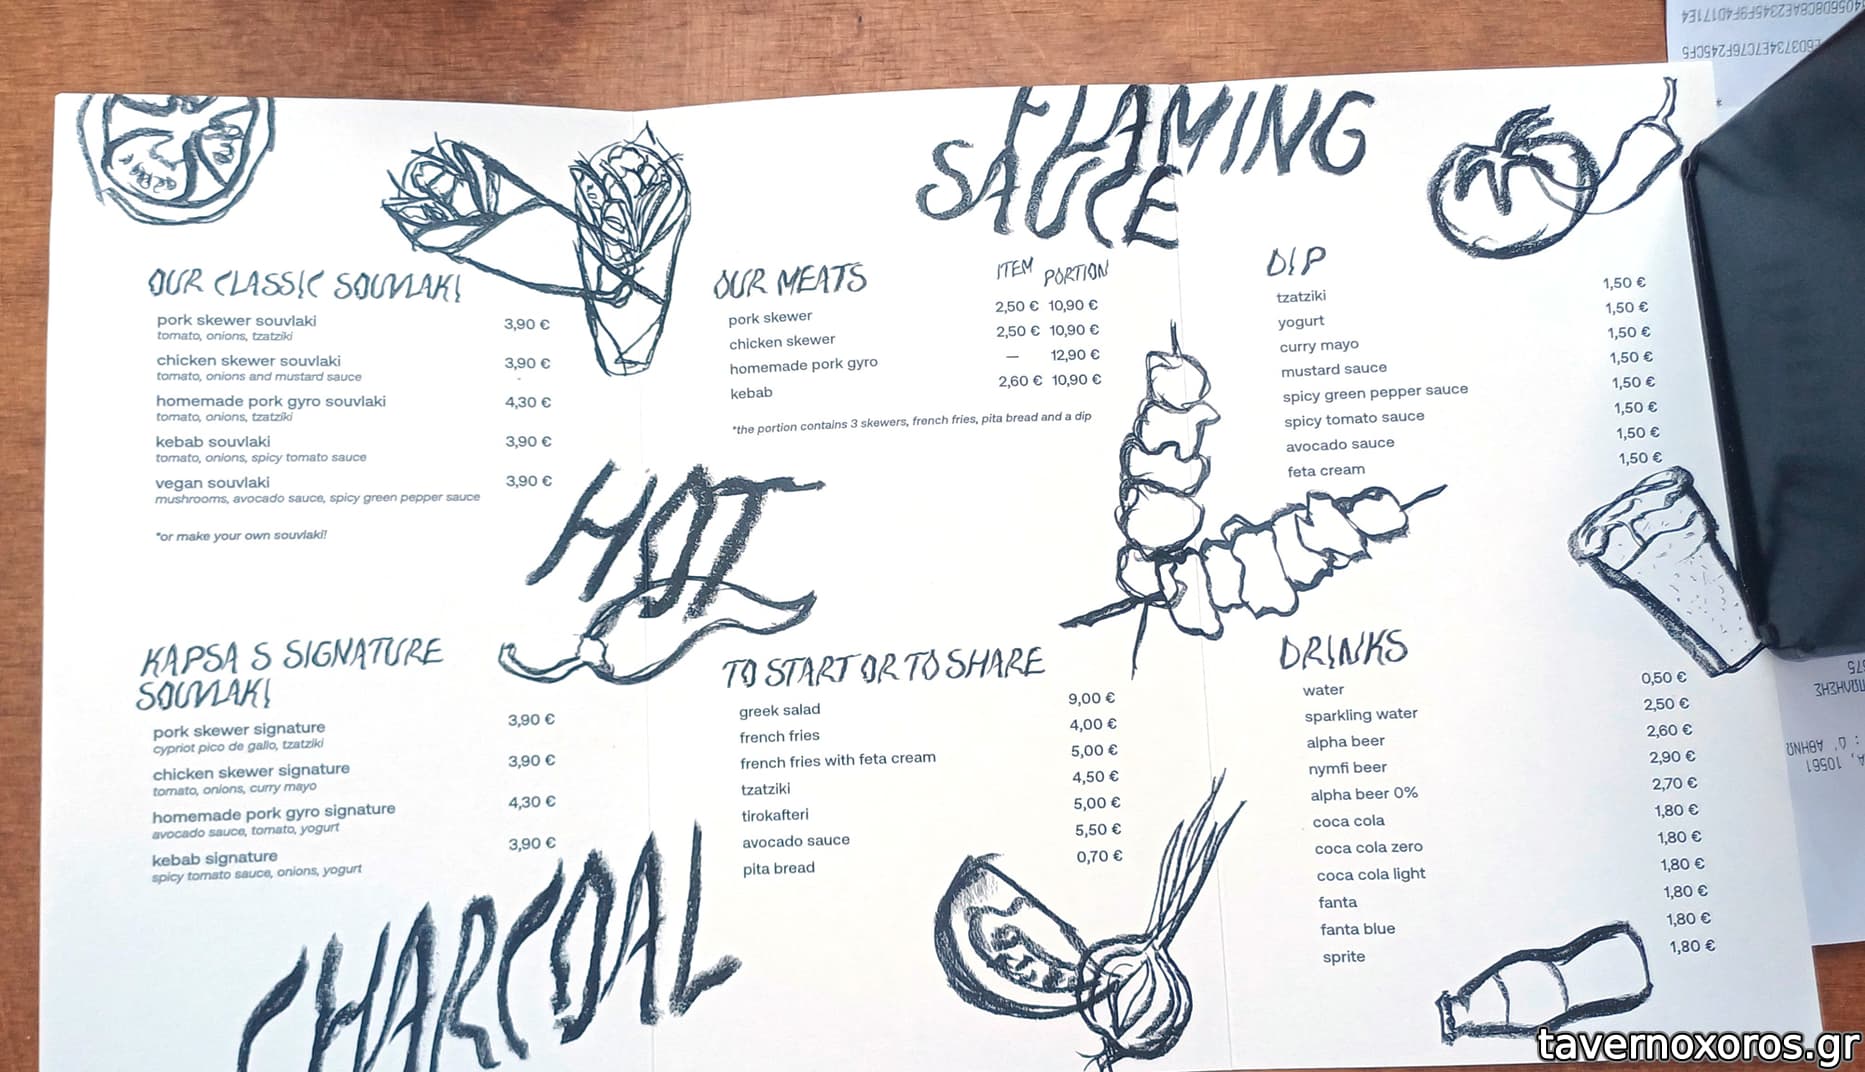 FLAMING
SAUCE
OUR CLASSIC SOUVLAKI
pork skewer souvlaki 3,90 €
tomato, onions, tzatziki
chicken skewer souvlaki 3,90 €
tomato, onions and mustard sauce
homemade pork gyro souvlaki 4,30 €
tomato, onions, tzatziki
kebab souvlaki 3,90 €
tomato, onions, spicy tomato sauce
vegan souvlaki 3,90 €
mushrooms, avocado sauce, spicy green pepper sauce
*or make your own souvlaki!
HOT
KAPSA S SIGNATURE
SOUVLAKI
pork skewer signature 3,90 €
cypriot pico de gallo, tzatziki
chicken skewer signature 3,90 €
tomato, onions, curry mayo
homemade pork gyro signature 4,30 €
avocado sauce, tomato, yogurt
kebab signature 3,90 €
spicy tomato sauce, onions, yogurt
CHARCOAL
OUR MEATS ITEM PORTION
pork skewer 2,50 € 10,90 €
chicken skewer 2,50 € 10,90 €
homemade pork gyro — 12,90 €
kebab 2,60 € 10,90 €
*the portion contains 3 skewers, french fries, pita bread and a dip
TO START OR TO SHARE
greek salad 9,00 €
french fries 4,00 €
french fries with feta cream 5,00 €
tzatziki 4,50 €
tirokafteri 5,00 €
avocado sauce 5,50 €
pita bread 0,70 €
DIP
tzatziki 1,50 €
yogurt 1,50 €
curry mayo 1,50 €
mustard sauce 1,50 €
spicy green pepper sauce 1,50 €
spicy tomato sauce 1,50 €
avocado sauce 1,50 €
feta cream 1,50 €
DRINKS
water 0,50 €
sparkling water 2,50 €
alpha beer 2,60 €
nymfi beer 2,90 €
alpha beer 0% 2,70 €
coca cola 1,80 €
coca cola zero 1,80 €
coca cola light 1,80 €
fanta 1,80 €
fanta blue 1,80 €
sprite 1,80 €
tavernoxoros.gr